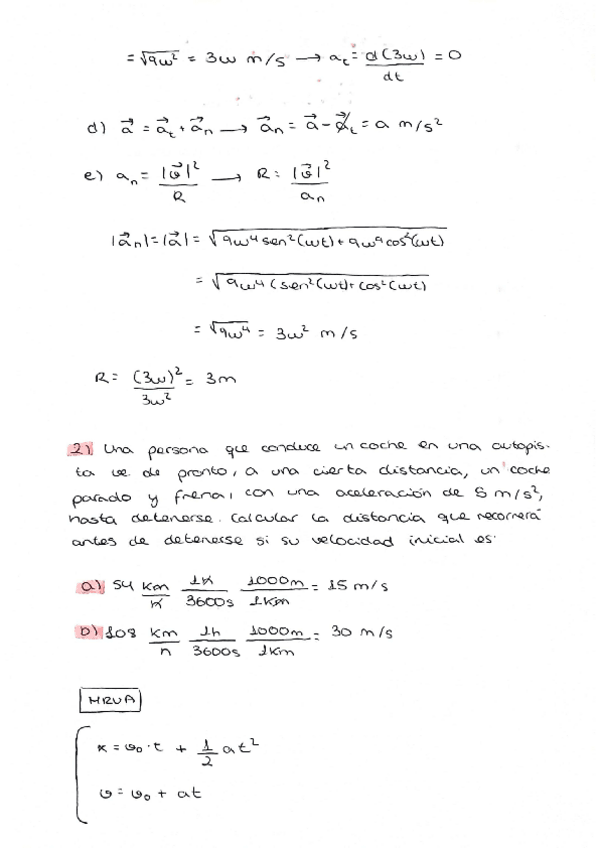 = √9ω² = 3ω m/s → a_t = d(3ω)/dt = 0
d) a⃗ = a⃗_t + a⃗_n → a⃗_n = a⃗ - a⃗_t = a m/s²
e) a_n = |v⃗|²/R → R = |v⃗|²/a_n
|a⃗_n| = |a⃗| = √9ω⁴ sen²(ωt) + 9ω⁴ cos²(ωt)
= √9ω⁴ (sen²(ωt) + cos²(ωt)
= √9ω⁴ = 3ω² m/s
R = (3ω)²/3ω² = 3m
2) Una persona que conduce un coche en una autopis-
ta ve de pronto, a una cierta distancia, un coche
parado y frena, con una aceleración de 5 m/s²,
hasta detenerse. Calcular la distancia que recorrerá
antes de detenerse si su velocidad inicial es:
a) 54 km/h 1h/3600s 1000m/1km = 15 m/s
b) 108 km/h 1h/3600s 1000m/1km = 30 m/s
MRUA
x = v₀·t + 1/2 at²
v = v₀ + at